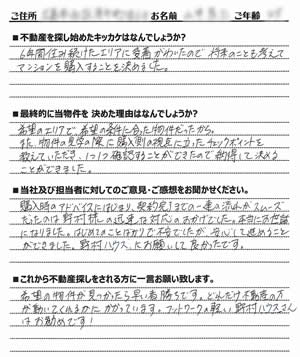 ご住所 お名前 ご年齢
■不動産を探し始めたキッカケはなんでしょうか?
6年間住み続けたエリアに愛着がわいたので、将来のことも考えて
マンションを購入することを決めました。
■最終的に当物件を 決めた理由はなんでしょうか?
希望のエリアで希望の条件に合った物件だったから。
また、物件の見学の際に購入側の視点に立ったチェックポイントを
教えていただき、1つ1つ確認することができたので納得して決める
ことができました。
■当社及び担当者に対してのご意見・ご感想をお聞かせください。
購入時のアドバイスにはじまり、契約完了までの一連の流れがスムーズ
だったのは野村様の迅速な対応のおかげでした。本当にお世話
になりました。はじめてのことばかりで不安でしたが、安心して進めることが
できました。野村ハウスにお願いして良かったです。
■これから不動産探しをされる方に一言お願い致します。
希望の物件が見つかったら早い者勝ちです。どれだけ不動産の方
が動いてくれるかにかかっています。フットワークの軽い野村ハウスさん
はお勧めです!